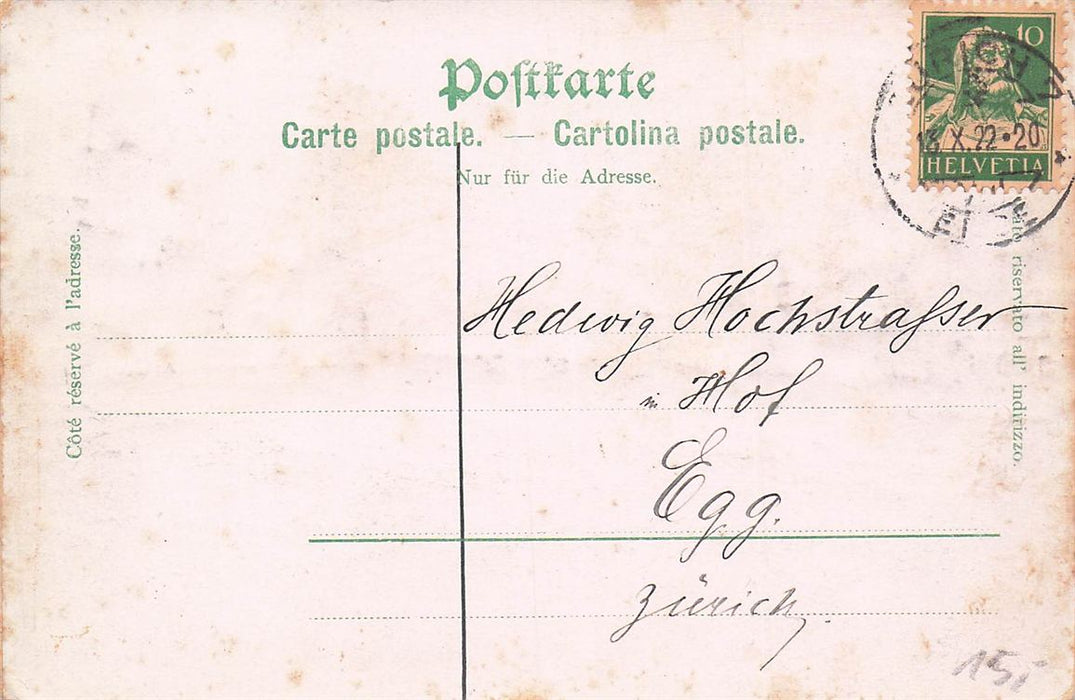 Postkarte
Carte postale. — Cartolina postale.
Nur für die Adresse.
10
X.22•20
HELVETIA
Côté réservé à l'adresse.
riservato all' indirizzo.
Hedwig Hochstrasser
in Hof
Egg.
Zürich